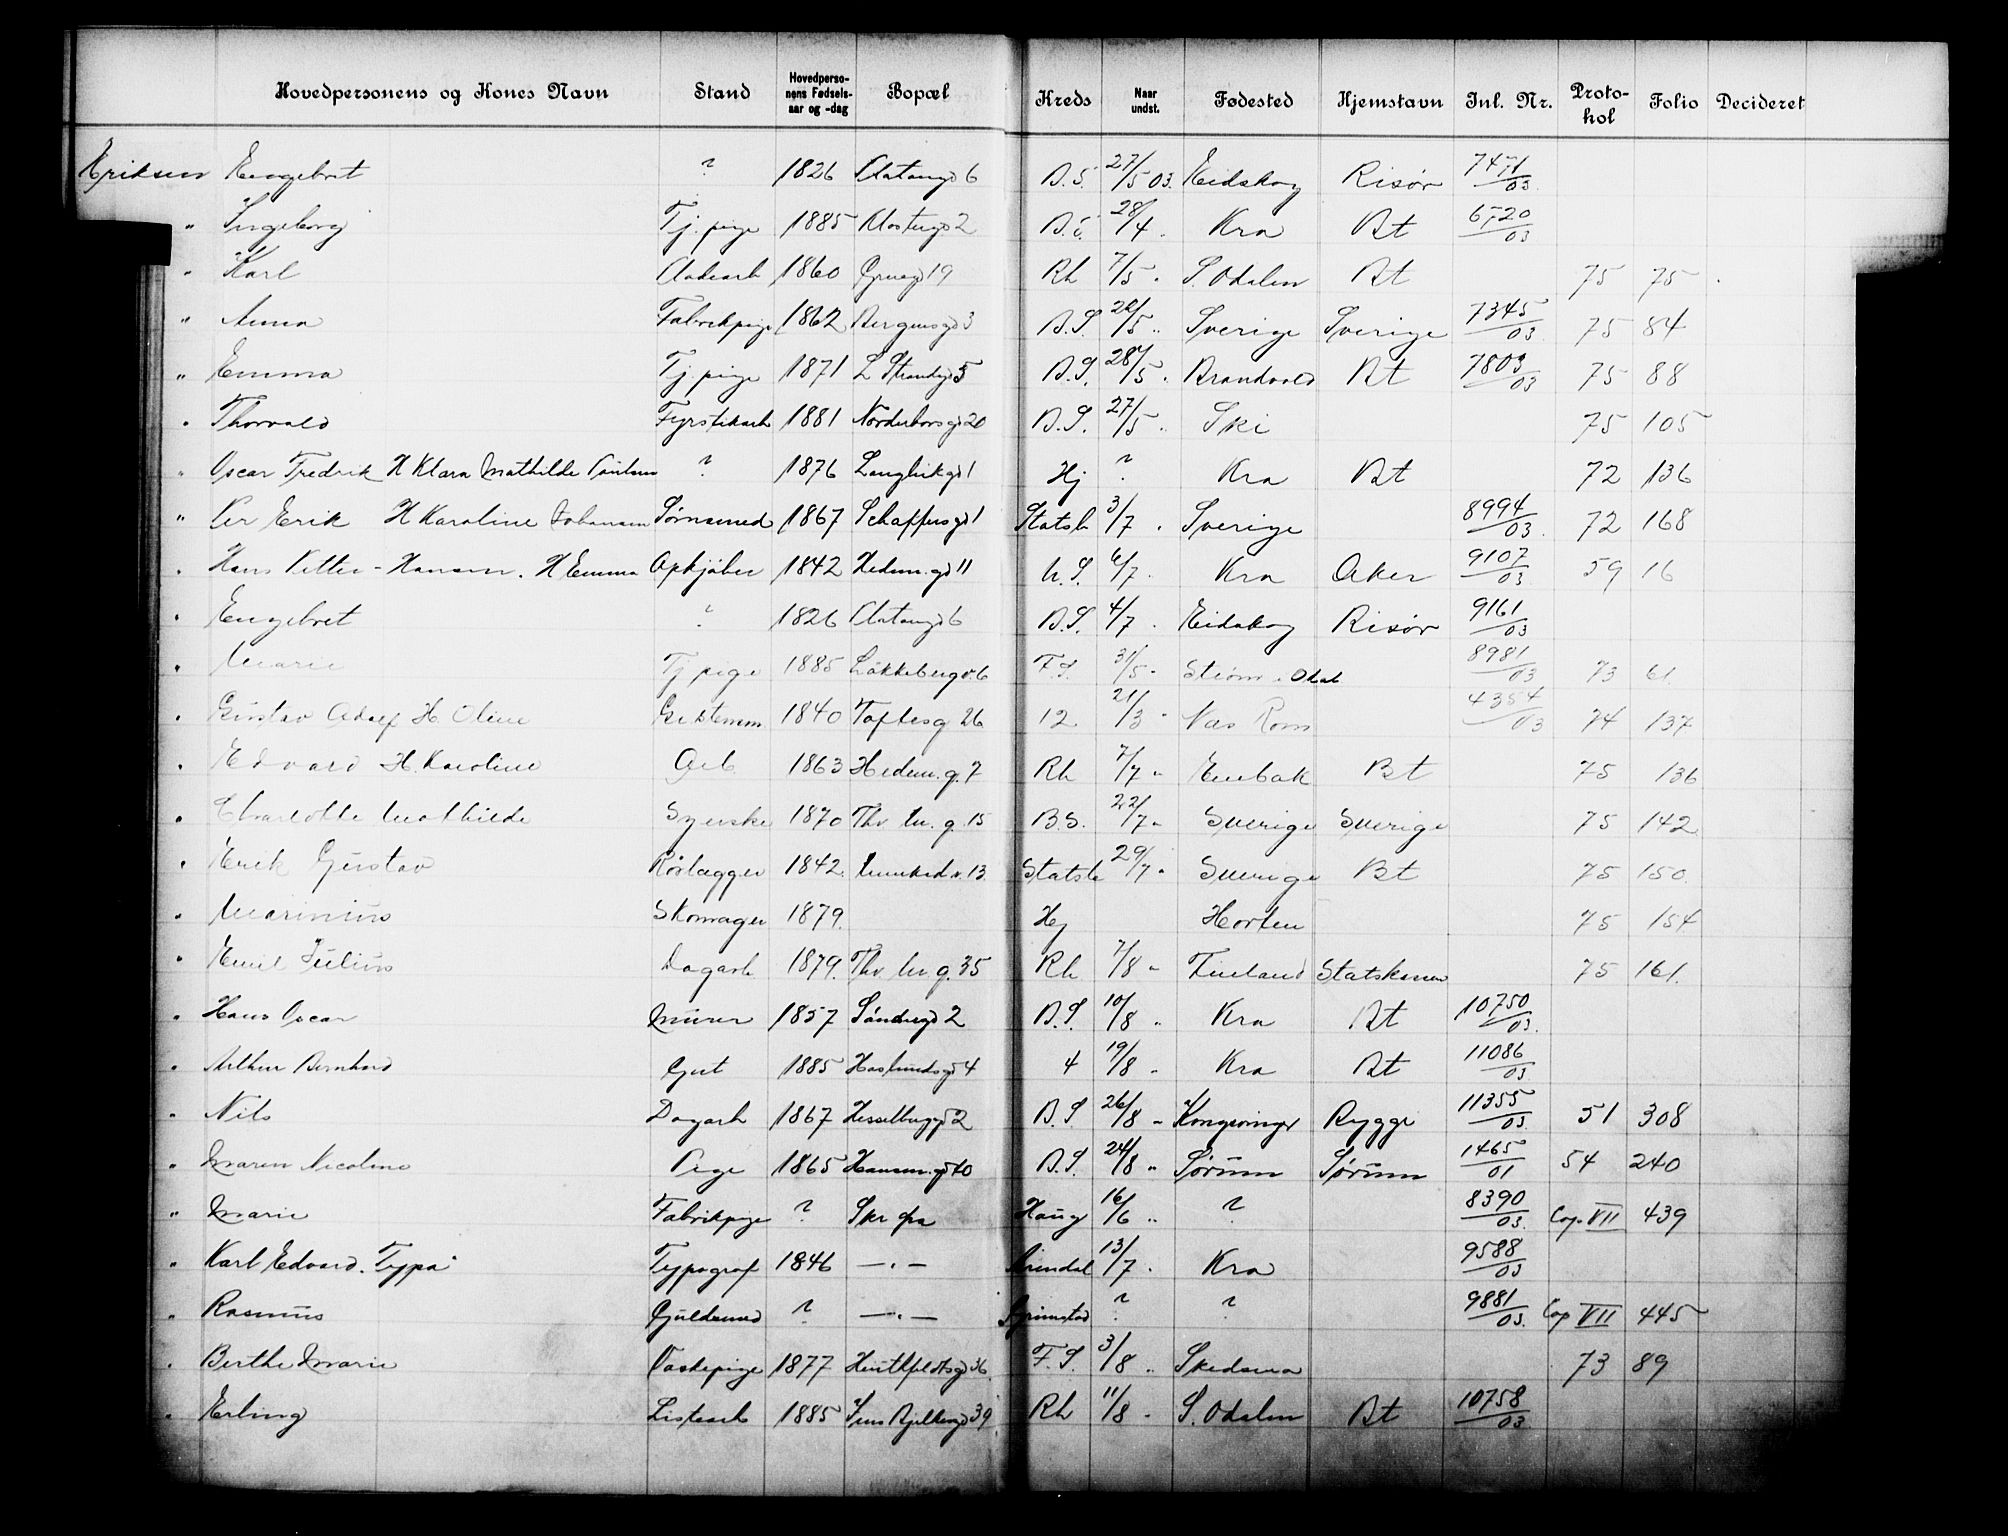 Hovedpersonens og Kones Navn Stand Hovedpersonens Fødselsaar og -dag Bopæl Kreds Naar undst. Fødested Hjemstavn Inl. Nr. Protokol Folio Decideret
Eriksen Engebret ? 1826 Platousgd 6 B.S. 27/5 03. Eidskog Risør 7471/03
" Ingeborg Tj. pige 1885 Klostergd 2 28/4 " Kra Bt 6520/03
" Karl 1860 Gruegd 19 Rh 7/5 " S. Odalen Bt 75 75
" Anna Fabrikpige 1862 Bergensgd 3 B.S. 5 " Sverige Sverige 7345/03 75 84
" Emma Tj. pige 1871 L Strandgd 5 B.S. 28/5 " Brandvold Bt 7803/03 75 88
" Thorvald Fyrstikarb 1881 Nordenborsgd 20 B.S. 27/5 " Ski 75 105
" Oscar Fredrik H Klara Mathilde ? 1876 Langliekgd 1 Hj ? Kra Bt 72 136
" Per Erik H Karoline Johansen Jernsmed 1867 Schaffersgd 1 Statsb 3/7 " Sverige 8994/03 72 168
" Hans Petter - Hansen. H Emma Opkjøber 1842 Hedem. gd 11 6/7 " Kra Aker 9107/03 59 16
" Engebret ? 1826 Platousgd 6 B.S. 4/7 " Eidskog Risør 9161/03
" Marie Tj pige 1885 Løkkebergv. 6 F.S. 31/5 " Strøm. Odal 8981/03 73 61
" Gustav Adolf H. Oline 1840 Toftesg 26 12 21/3 " Næs Rom 4354/03 74 137
" Edvard H. Karoline Arb 1863 Hedem. g. 7 Rh 7/7 " Enebak Bt 75 136
" Charlotte Mathilde Syerske 1870 Thv M. g. 15 B.S. 22/7 " Sverige Sverige 75 142
" Erik Gustav Rørlægger 1842 Munked. v. 13 Statsb 29/7 " Sverige Bt 75 150
" Marinius Skomager 1879. Hj Horten 75 154
" Emil Julius Dagarb 1879. Thv M. g. 35 Rh 7/8 " Finland Statskassen 75 161
" Hans Oscar Murer 1857 Søndregd 2 B.S. 10/8 " Kra Bt 10750/03
" Arthur Bernhard Gut 1885 Haslundsgd 4 4 19/8 " Kra Bt 11086/03
" Nils Dagarb 1867 Hesselbergd 2 B.S. 26/8 " Kongsvinger Rygge 11355/03 51 308
" Maren Nicoline Pige 1865 Hansm. gd 10 B.S. 24/8 " Sørum Sørum 1465/01 54 240
" Marie Fabrikpige ? Skr fra Haug 16/6 " ? 8390/03 Cop VII 439
" Karl Edvard. Typa Typograf 1846 — " — Arendal 13/7 " Kra 9588/03
" Rasmus Guldsmed ? — " — Grimstad ? ? 9881/03 Cop VII 445
" Berthe Marie Vaskepige 1877 Huitfeldtsgd 36 F.S. 3/8 " Skedsmo 73 89
" Erling Listearb 1885 Jens Bjelkesgd 39 Rh 11/8 " S. Odalen Bt 10758/03